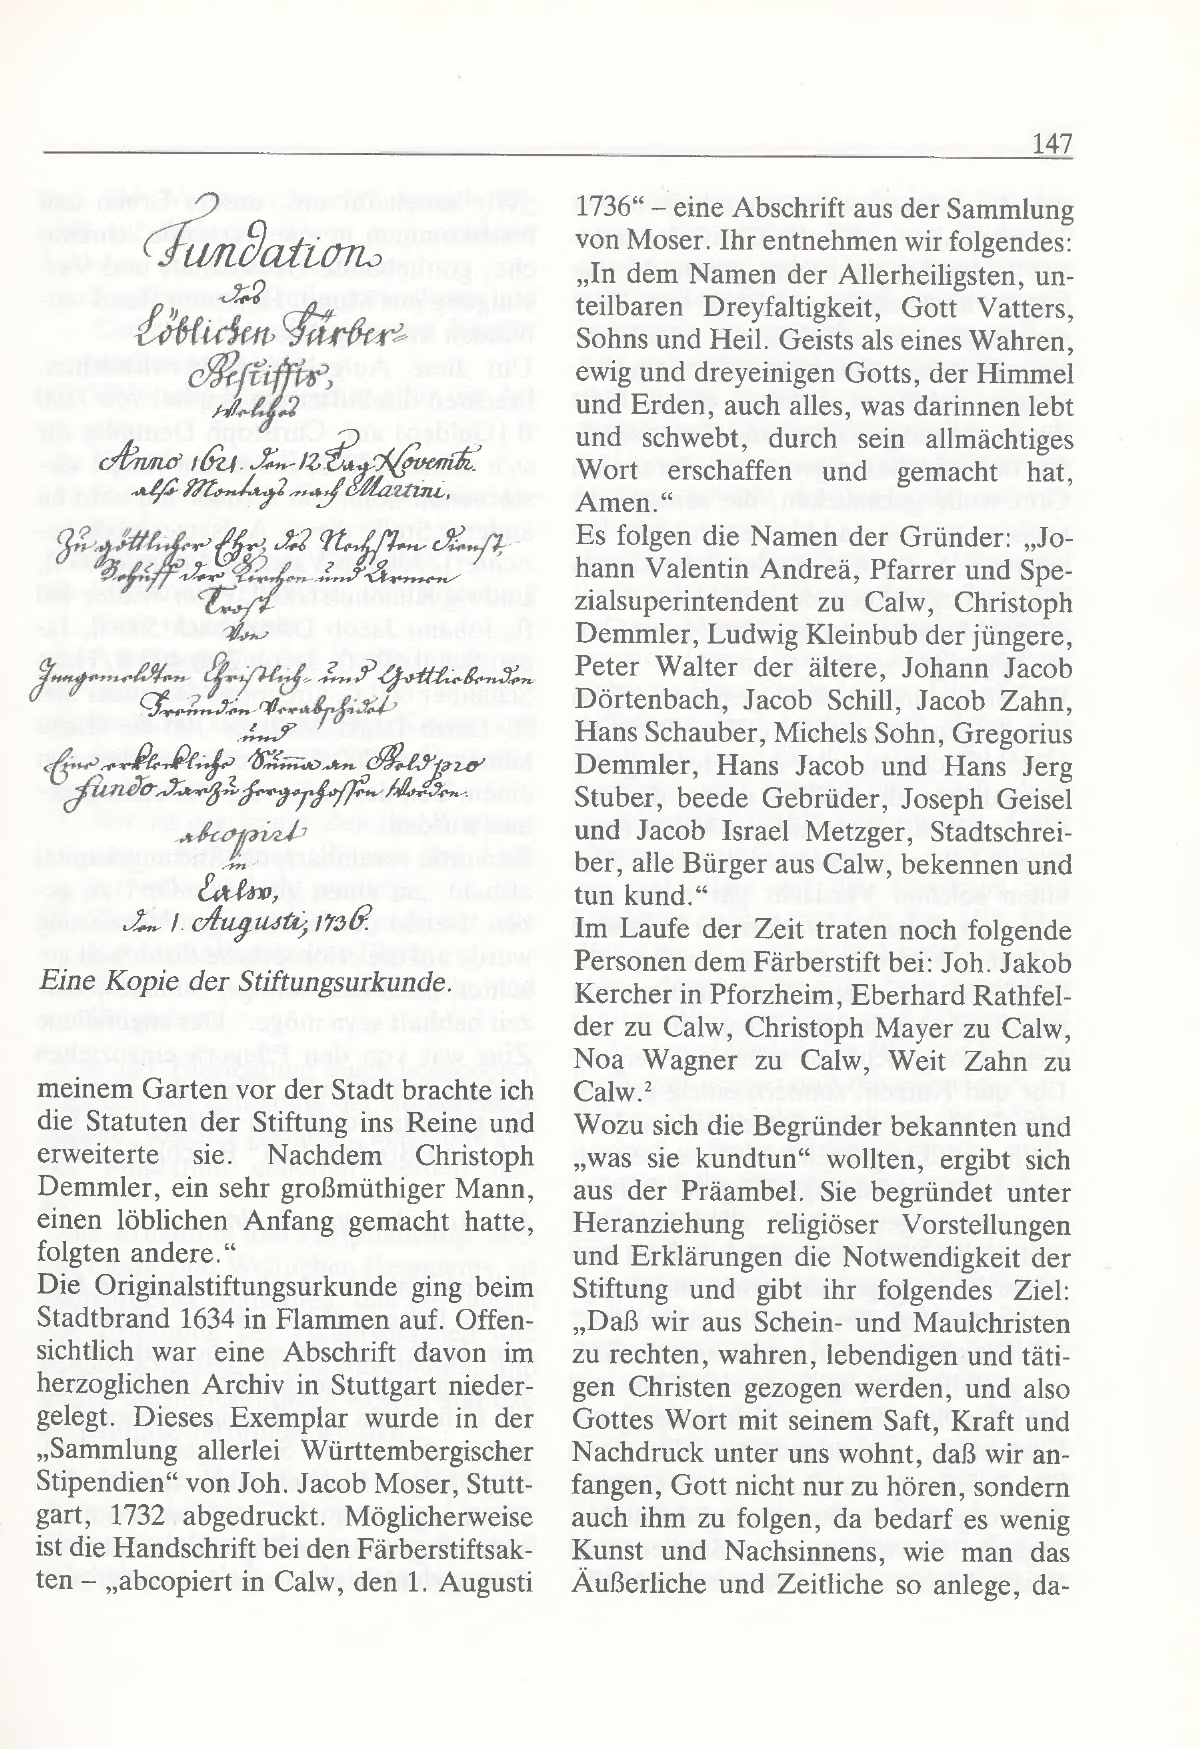 147
Fundation
des
Löblichen Färber-
Gestiffts,
Welches
Anno 1621. den 12. Tag Novembr.
alß Montags nach Martini,
Zu göttlicher Ehr, des Nechsten Dienst,
Behuff der Kirchen und Armen
Trost
Von
Jnngemeldten Christlich- und Gottliebenden
Freunden Verabschidet
und
Eine erkleckliche Summa an Geld pro
fundo darzu hergeschossen Worden.
abcopirt
in
Calw,
den 1. Augusti, 1736.
Eine Kopie der Stiftungsurkunde.
meinem Garten vor der Stadt brachte ich
die Statuten der Stiftung ins Reine und
erweiterte sie. Nachdem Christoph
Demmler, ein sehr großmüthiger Mann,
einen löblichen Anfang gemacht hatte,
folgten andere.“
Die Originalstiftungsurkunde ging beim
Stadtbrand 1634 in Flammen auf. Offen-
sichtlich war eine Abschrift davon im
herzoglichen Archiv in Stuttgart nieder-
gelegt. Dieses Exemplar wurde in der
„Sammlung allerlei Württembergischer
Stipendien“ von Joh. Jacob Moser, Stutt-
gart, 1732 abgedruckt. Möglicherweise
ist die Handschrift bei den Färberstiftsak-
ten – „abcopiert in Calw, den 1. Augusti
1736“ – eine Abschrift aus der Sammlung
von Moser. Ihr entnehmen wir folgendes:
„In dem Namen der Allerheiligsten, un-
teilbaren Dreyfaltigkeit, Gott Vatters,
Sohns und Heil. Geists als eines Wahren,
ewig und dreyeinigen Gotts, der Himmel
und Erden, auch alles, was darinnen lebt
und schwebt, durch sein allmächtiges
Wort erschaffen und gemacht hat,
Amen.“
Es folgen die Namen der Gründer: „Jo-
hann Valentin Andreä, Pfarrer und Spe-
zialsuperintendent zu Calw, Christoph
Demmler, Ludwig Kleinbub der jüngere,
Peter Walter der ältere, Johann Jacob
Dörtenbach, Jacob Schill, Jacob Zahn,
Hans Schauber, Michels Sohn, Gregorius
Demmler, Hans Jacob und Hans Jerg
Stuber, beede Gebrüder, Joseph Geisel
und Jacob Israel Metzger, Stadtschrei-
ber, alle Bürger aus Calw, bekennen und
tun kund.“
Im Laufe der Zeit traten noch folgende
Personen dem Färberstift bei: Joh. Jakob
Kercher in Pforzheim, Eberhard Rathfel-
der zu Calw, Christoph Mayer zu Calw,
Noa Wagner zu Calw, Weit Zahn zu
Calw.²
Wozu sich die Begründer bekannten und
„was sie kundtun“ wollten, ergibt sich
aus der Präambel. Sie begründet unter
Heranziehung religiöser Vorstellungen
und Erklärungen die Notwendigkeit der
Stiftung und gibt ihr folgendes Ziel:
„Daß wir aus Schein- und Maulchristen
zu rechten, wahren, lebendigen und täti-
gen Christen gezogen werden, und also
Gottes Wort mit seinem Saft, Kraft und
Nachdruck unter uns wohnt, daß wir an-
fangen, Gott nicht nur zu hören, sondern
auch ihm zu folgen, da bedarf es wenig
Kunst und Nachsinnens, wie man das
Äußerliche und Zeitliche so anlege, da-